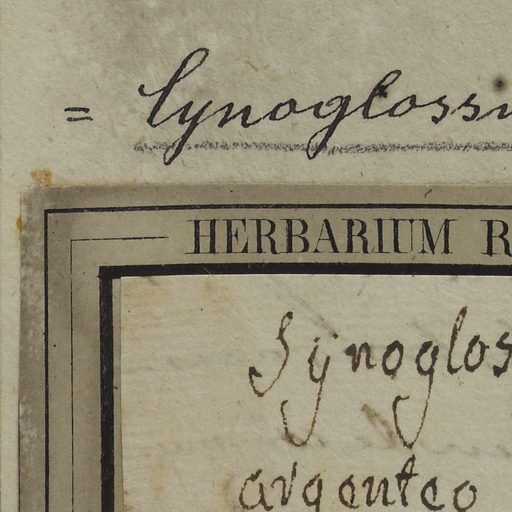 = Cynogloss
HERBARIUM R
Cynoglos
argenteo